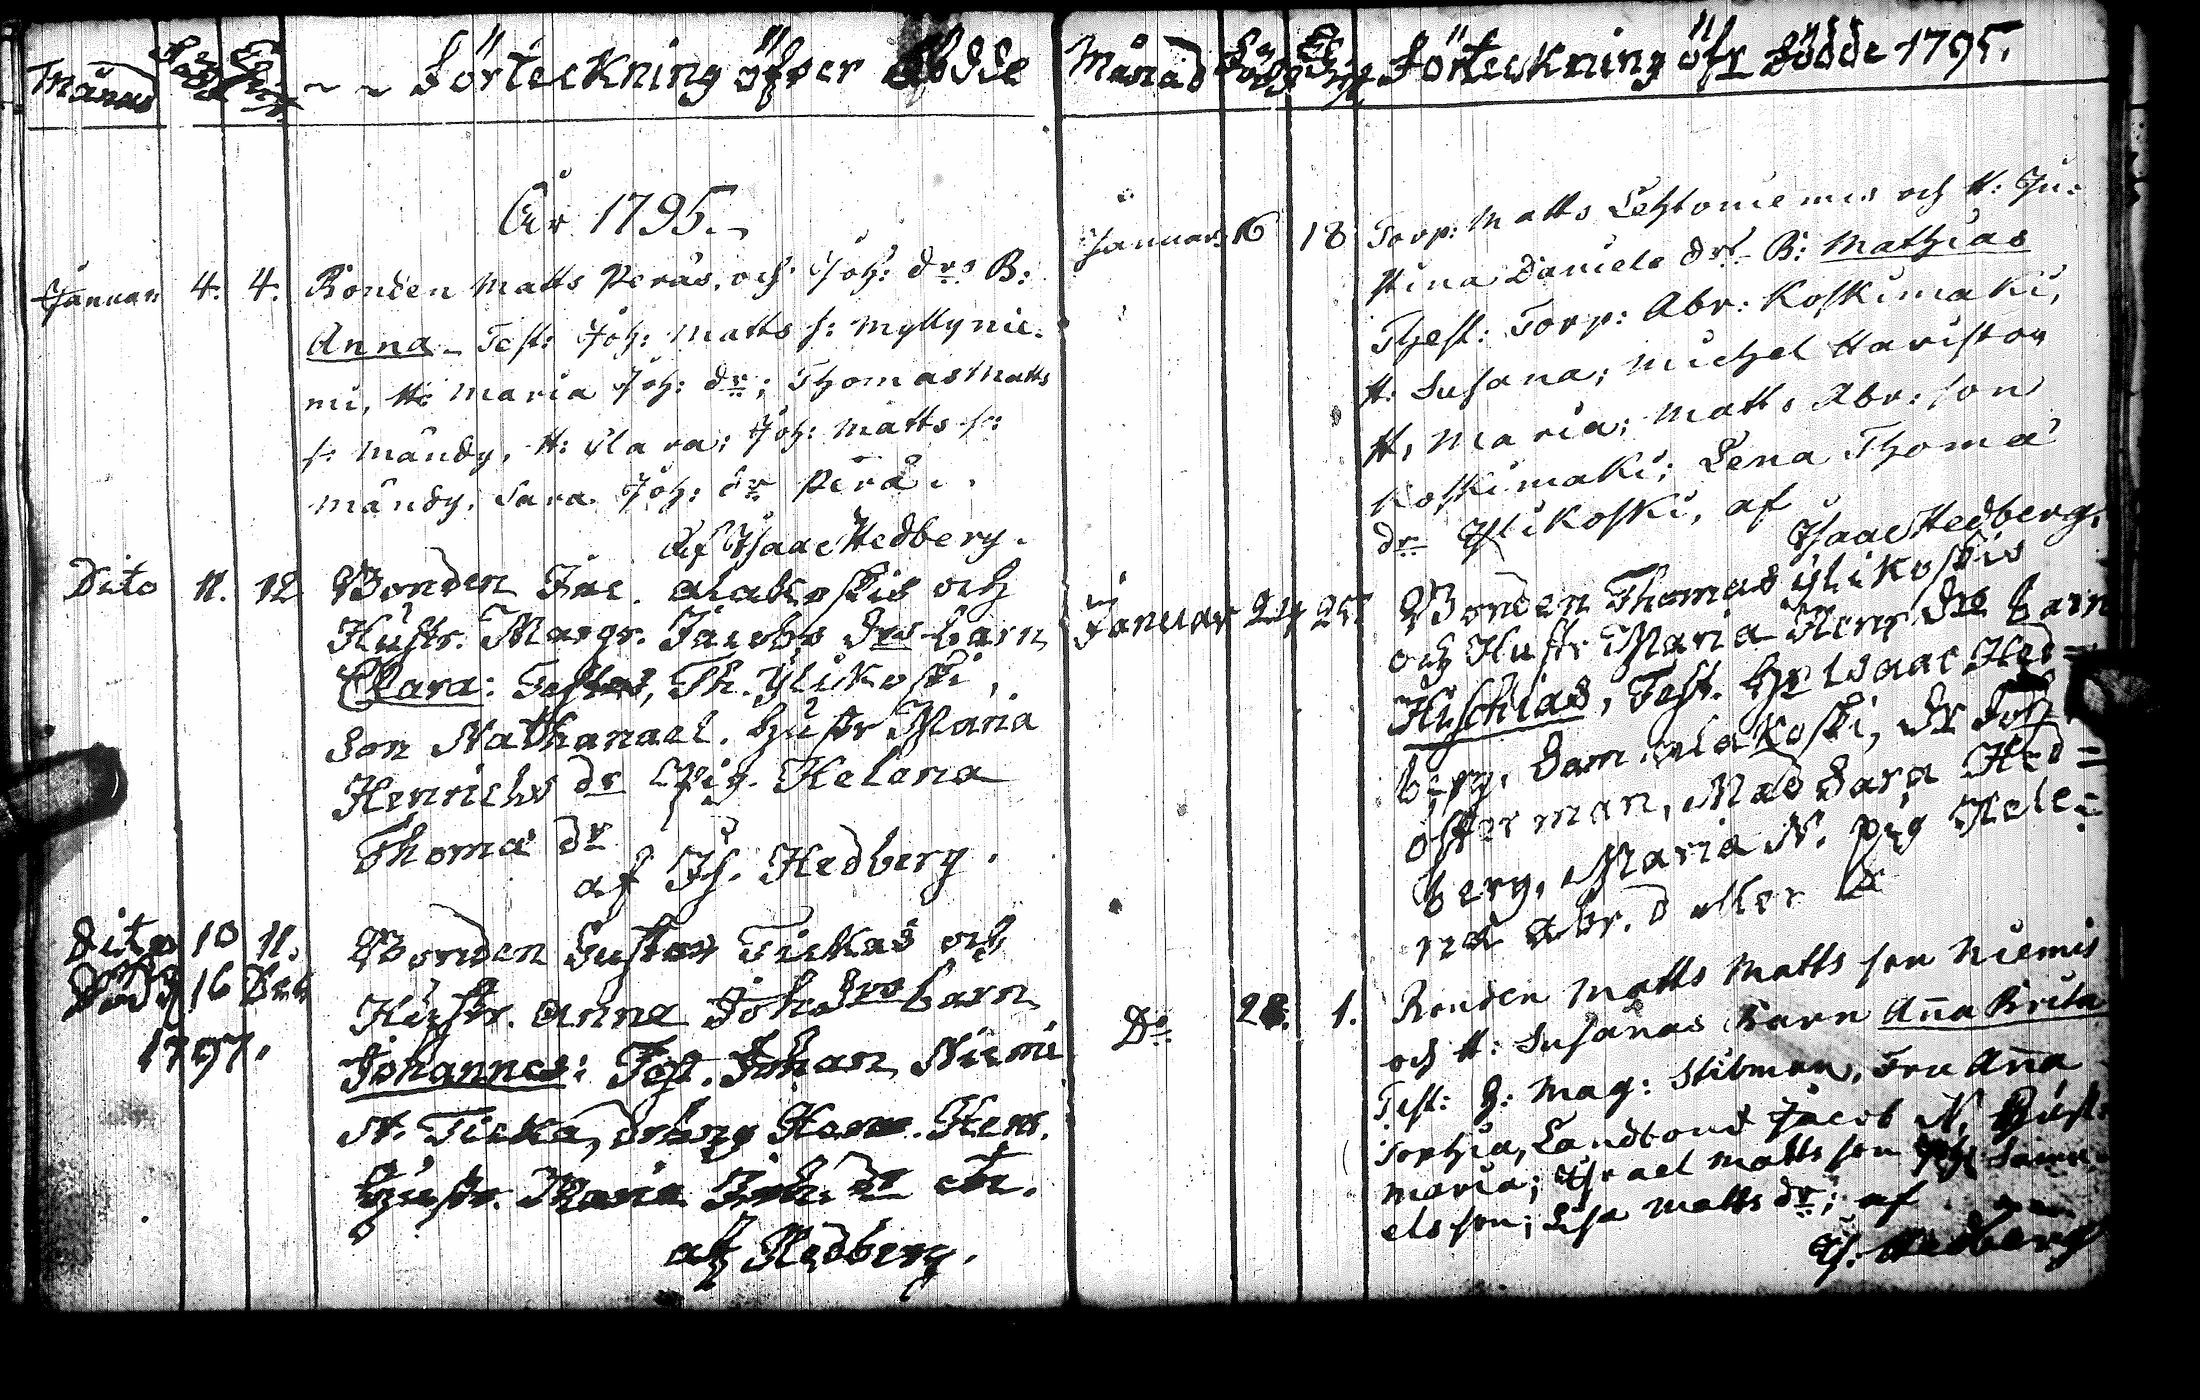 Månad Född Christ. ~ ~ Förteckning öfver Födde
År 1795.
Januari 4. 4. Bonden Matts Peräs, och Joh: drs B:
Anna. Test: Joh: Matts s: Myllynie-
mi, H: Maria Joh: dr; Thomas Matts
s: Mändy, H: Clara; Joh: Matts s:
Mändy, Sara Joh: dr Perä.
Af Isaac Hedberg.
Dito 11. 12 Bonden Jac. Alakoskis och
Hustr. Margr. Jacobs drs barn
Clara: Testes, Th. Ylikoski,
Son Nathanael. hustr Maria
Henrichs dr Pig. Helena
Thomæ dr
af Is. Hedberg.
Dito 10 11. Bonden Gustav Tickas och
Död d 16 Hustr. Anna Joh. drs barn
1797. Johannes: Test. Johan Niemi
N. Ticka, Henr.
Hustr. Maria dr
af Hedberg.
Månad Född Förteckning öfr Födde 1795.
Januari 16 18 Torp: Matts Lehtoniemis och H: Ju-
stina Daniels drs B: Mathias
Thest: Torp: Abr: Koskimaki,
H: Susana; Michel Haristoy
H, Maria; Matts Abr: son
Koskimaki; Lena Thomæ
dr Ylikoski, af
Isaac Hedberg.
Januar 24 25 Bonden Thomas Ylikoskis
och Hustr Maria Henr drs barn
Hischias, Test. Hr Isaac Hed=
berg, Sam. Alakoski, Dr Joh
österman, Mad Sara Hed=
berg, Maria N. pig Hele=
na Abr. d eller
Do 28. 1. Bonden Matts Matts son Niemis
och H: Susanas Barn Aña Brita
Test: H: Mag: Stibman, Fru Aña
Sophia, Landbond Jacob N, Hustr:
Maria; Israel Matts son Samu-
els son; Lisa Matts dr; af
Is. Hedberg